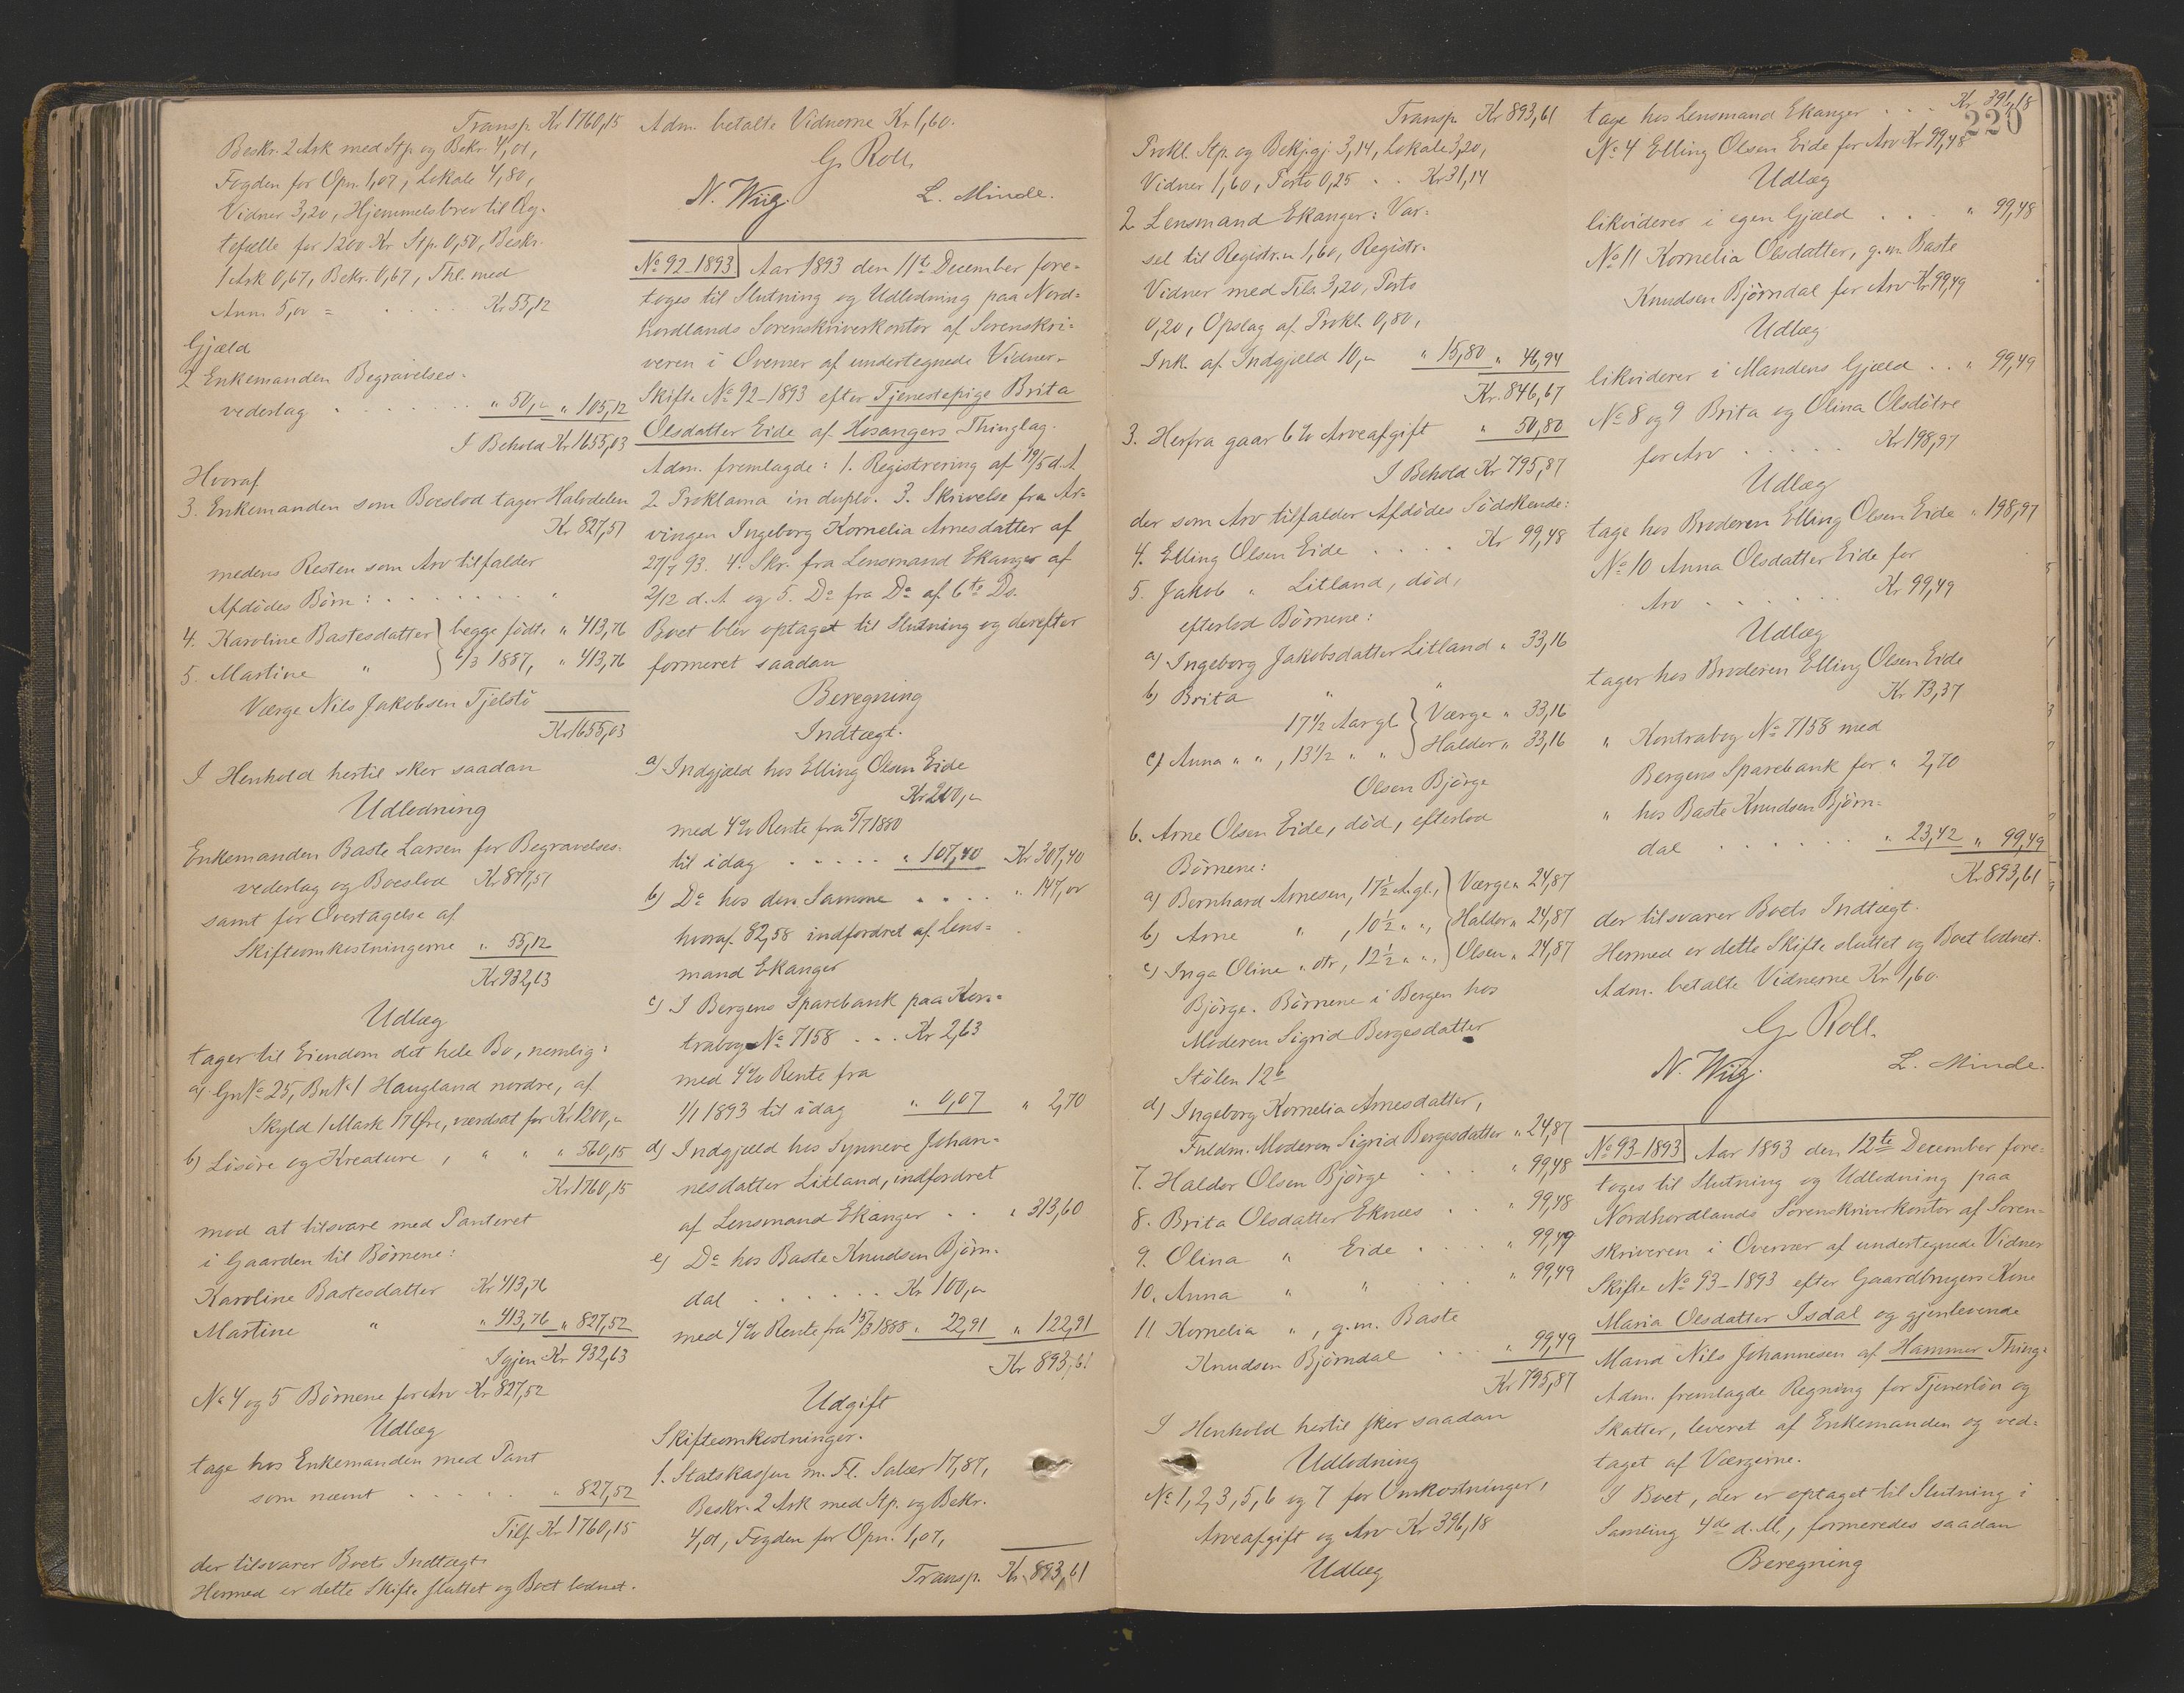 Transp. Kr 1760,15
Beskr. 2 Ark med Stp. og Bekr. 4,01,
Fogden for Opn. 1,07, Lokale 4,80,
Vidner 3,20, Hjemmelsbrev til Æg-
tefælle for 1200 Kr Stp. 0,50, Beskr.
1 Ark 0,67, Bekr. 0,67, Thl. med
Ann. 5,00 = . . . . . Kr 55,12
Gjæld
2 Enkemanden Begravelses-
vederlag . . . . . " 50,00 " 105,12
I Behold Kr 1655,03
Hvoraf
3. Enkemanden som Boeslod tager Halvdelen
Kr 827,51
medens Resten som Arv tilfalder
Afdødes Børn: . . . . . . . "
4. Karoline Bastesdatter } begge fødte " 413,76
5. Martine " } 6/3 1887, " 413,76
Værge Nils Jakobsen Tjelstö
Kr 1655,03
I Henhold hertil sker saadan
Udlodning
Enkemanden Baste Larsen for Begravelses-
vederlag og Boeslod Kr 877,51
samt for Overtagelse af
Skifteomkostningerne " 55,12
Kr 932,63
Udlæg
tager til Eiendom det hele Bo, nemlig:
a) Gn No 25, Bn No 1 Haugland nordre, af
Skyld 1 Mark 17 Øre, værdsat for Kr 1200,00
b) Løsøre og Kreature, " " " 560,15
Kr 1760,15
mod at tilsvare med Panteret
i Gaarden til Børnene:
Karoline Bastesdatter Kr 413,76
Martine " " 413,76 " 827,52
Igjen Kr 932,63
No 4 og 5 Børnene for Arv Kr 827,52
Udlæg
tage hos Enkemanden med Pant
som nævnt . . . . . " 827,52
Tilf. Kr 1760,15
der tilsvarer Boets Indtægt.
Hermed er dette Skifte sluttet og Boet lodnet.
Adm. betalte Vidnerne Kr 1,60.
G. Roll.
N. Wiig. L. Minde.
No 92-1893 Aar 1893 den 11te December fore-
toges til Slutning og Udlodning paa Nord-
hordlands Sorenskriverkontor af Sorenskri-
veren i Overvær af undertegnede Vidner
Skifte No 92-1893 efter Tjenestepige Brita
Olsdatter Eide af Hosangers Thinglag.
Adm. fremlagde: 1. Registrering af 19/5 d. A.
2. Proklama in duplo. 3. Skrivelse fra Ar-
vingen Ingeborg Kornelia Arnesdatter af
27/7 93. 4. Skr. fra Lensmand Ekanger af
2/12 d. A. og 5. Do fra Do af 6te Ds.
Boet blev optaget til Slutning og derefter
formeret saadan
Beregning
Indtægt.
a) Indgjæld hos Elling Olsen Eide
Kr 200,00
med 4% Rente fra 5/7 1880
til idag . . . . . " 107,40 Kr 307,40
b) Do hos den Samme . . . . " 147,00
hvoraf 82,58 indfordret af Lens-
mand Ekanger
c) I Bergens Sparebank paa Kon-
trabog No 7158 . . . Kr 2,63
med 4% Rente fra
1/1 1893 til idag " 0,07 " 2,70
d) Indgjæld hos Synneve Johan-
nesdatter Litland, indfordret
af Lensmand Ekanger . . " 313,60
e) Do hos Baste Knudsen Bjørn-
dal . . . . . . Kr 100,00
med 4% Rente fra 15/3 1888 " 22,91 " 122,91
Kr 893,61
Udgift
Skifteomkostninger.
1. Statskassen m. Fl. Salær 17,87,
Beskr. 2 Ark med Stp. og Bekr.
4,01, Fogden for Opn. 1,07,
Transp. Kr 893,61
Transp. Kr 893,61
Prokl. Stp. og Bekjgj. 3,14, Lokale 3,20,
Vidner 1,60, Porto 0,25 . . Kr 31,14
2. Lensmand Ekanger: Var-
sel til Registr.n 1,60, Registr.
Vidner med Tils. 3,20, Porto
0,20, Opslag af Prokl. 0,80,
Ink. af Indgjæld 10,00 " 15,80 " 46,94
Kr. 846,67
3. Herfra gaar 6% Arveafgift " 50,80
I Behold Kr 795,87
der som Arv tilfalder Afdødes Södskende:
4. Elling Olsen Eide . . . . Kr 99,48
5. Jakob " Litland, död,
efterlod Børnene:
a) Ingeborg Jakobsdatter Litland " 33,16
b) Brita " "
17 1/2 Aar gl. } Værge " 33,16
c) Anna " " , 13 1/2 " " } Haldor " 33,16
Olsen Björge
6. Arne Olsen Eide, död, efterlod
Börnene:
a) Bernhard Arnesen, 17 1/2 A. gl., } Værge " 24,87
b) Arne " , 10 1/2 " ", } Haldor " 24,87
c) Inga Oline " dtr, 12 1/2 " ", } Olsen " 24,87
Björge. Börnene i Bergen hos
Moderen Sigrid Bergesdatter
Stölen 12b
d) Ingeborg Kornelia Arnesdatter,
Fuldm. Moderen Sigrid Bergesdatter " 24,87
7. Haldor Olsen Björge . . . " 99,48
8. Brita Olsdatter Eknæs . . " 99,48
9. Olina " Eide . . . " 99,49
10. Anna " " . . . " 99,49
11 Kornelia " , g. m. Baste
Knudsen Björndal . . . " 99,49
Kr 795,87
I Henhold hertil sker saadan
Udlodning
No 1, 2, 3, 5, 6 og 7 for Omkostninger,
Arveafgift og Arv Kr 396,18
Udlæg
220
tage hos Lensmand Ekanger . . . Kr 396,18
No 4 Elling Olsen Eide for Arv Kr 99,48
Udlæg
likviderer i egen Gjæld . . . " 99,48
No 11 Kornelia Olsdatter, g. m. Baste
Knudsen Björndal for Arv Kr 99,49
Udlæg
likviderer i Mandens Gjæld . . " 99,49
No 8 og 9 Brita og Olina Olsdötre
for Arv . . . . . Kr 198,97
Udlæg
tage hos Broderen Elling Olsen Eide " 198,97
No 10 Anna Olsdatter Eide for
Arv . . . . . . Kr 99,49
Udlæg
tager hos Broderen Elling Olsen Eide
Kr 73,37
" Kontrabog No 7158 med
Bergens Sparebank for " 2,70
" hos Baste Knudsen Björn-
dal . . . . . . " 23,42 " 99,49
Kr 893,61
der tilsvarer Boets Indtægt.
Hermed er dette Skifte sluttet og Boet lodnet.
Adm. betalte Vidnerne Kr 1,60.
G. Roll.
N. Wiig. L. Minde.
No 93-1893 Aar 1893 den 12te December fore-
toges til Slutning og Udlodning paa
Nordhordlands Sorenskriverkontor af Soren-
skriveren i Overvær af undertegnede Vidner
Skifte No 93-1893 efter Gaardbrugers Kone
Maria Olsdatter Isdal og gjenlevende
Mand Nils Johannesen af Hammer Thing-
Adm. fremlagde Regning for Tjenerløn og
Skatter, leveret af Enkemanden og ved-
taget af Værgerne.
I Boet, der er optaget til Slutning i
Samling 4de d. M., formeredes saadan
Beregning